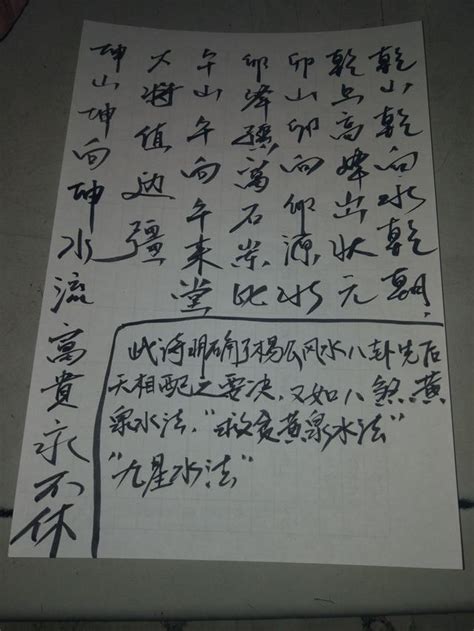 乾山乾向水乾朝,
乾上高峰出状元
卯山卯向卯源水
卯峰富石崇比
午山午向午来堂
大将值边疆
坤山坤向坤水流富貴永不休
此诗明确了杨公风水八卦先后
天相配之要决,又如八煞黄
泉水法,"救贫黄泉水法"
"九星水法"